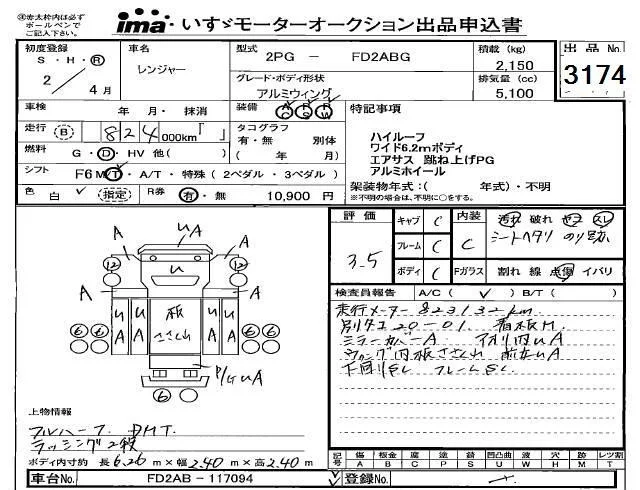 ※赤太枠内は必ず ボールペンで ご記入下さい。
ima・いすゞモーターオークション出品申込書
初度登録 S・H・R 2/4月
車名 レンジャー
型式 2PG － FD2ABG
積載 (kg) 2,150
出品No. 3174
グレード・ボディ形状 アルミウィング
排気量 (cc) 5,100
車検 年 月・ 抹消
装備 AC PS PW
特記事項
走行 (B) 824000km「 」
タコグラフ 有・無 別体 ( 年 月)
ハイルーフ
ワイド6.2mボディ
燃料 G・D・HV 他( )
エアサス 跳ね上げPG
アルミホイール
シフト F6 MT・A/T・特殊 (2ペダル・3ペダル)
架装物年式:( 年式)・不明
※不明の場合は、不明に○をする。
色 白 (指定) R券 有・無 10,900 円
評価 3.5
キャブ C 内装 C
フレーム C
ボディ C Fガラス
汚れ 破れ ヤコゲ スレ
シートヘタリ のり跡
割れ 線 点傷 イバリ
検査員報告 A/C( ✓ ) B/T( )
走行メーター 823132km
別タコ20-01
ミラーカバーA
下回りSL フレームSL
A UA A
12 U 12
A A
U A U A 板 ささくれ U A U A
6 6 6 6
P/G UA
6
上物情報
フルハーフ DMT.
ラッシング2段
ボディ内寸約 長6.26m×幅2.40m×高2.40m
記号 傷 板金 腐 塗 錆 凹凸曲 波 穴 跡 レツ割
A B C P S U W H M T
車台No. FD2AB－117094
登録No.